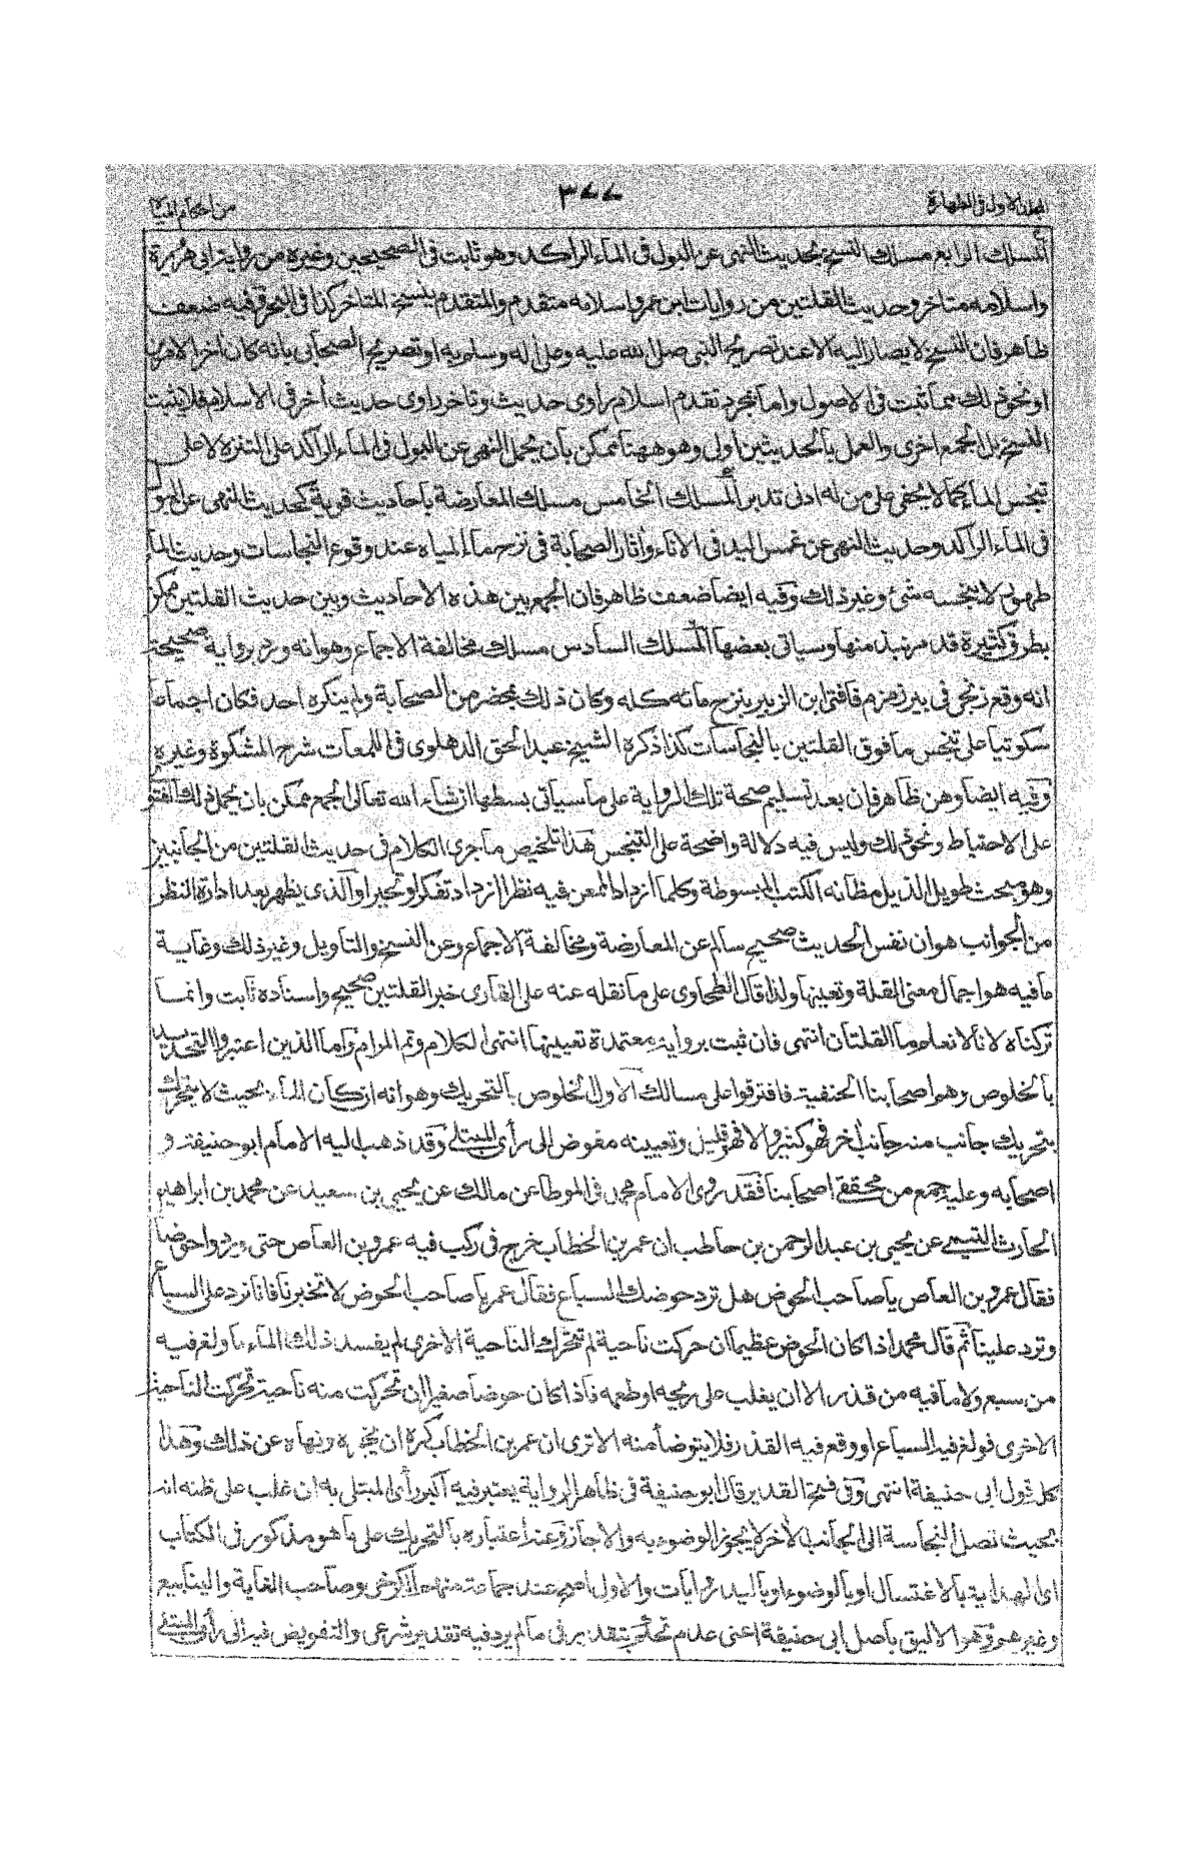 المجلد الاول فى الطهارة ٣٧٧ من احكام المياه
المسلك الرابع مسلك النسخ بحديث النهى عن البول فى الماء الراكد وهو ثابت فى الصحيحين وغيره من رواية ابى هريرة
واسلامه متاخر وحديث القلتين من روايات ابن عمر واسلامه متقدم والمتقدم ينسخ المتاخر كذا فى البحر وفيه ضعف
ظاهر فان النسخ لا يصار اليه الا عند تصريح النبى صلى الله عليه وعلى اله وسلم به او تصريح الصحابى بانه كان اخر الامرين
او نحو ذلك مما ثبت فى الاصول واما بمجرد تقدم اسلام راوى حديث وتاخر راوى حديث أخر فى الاسلام فلا يثبت
النسخ بل الجمع احرى والعمل بالحديثين أولى وهو ههنا ممكن بأن يحمل النهى عن البول فى الماء الراكد على التنزه لا على
تنجس الماء كما لا يخفى على من له ادنى تدبر المسلك الخامس مسلك المعارضة باحاديث قوية كحديث النهى عن البول
فى الماء الراكد وحديث النهى عن غمس اليد فى الاناء وأثار الصحابة فى نزح ماء المياه عند وقوع النجاسات وحديث الماء
طهور لا ينجسه شئ وغير ذلك وفيه ايضا ضعف ظاهر فان الجمع بين هذه الاحاديث وبين حديث القلتين ممكن
بطرق كثيرة قد مر نبذ منها وسياتى بعضها المسلك السادس مسلك مخالفة الاجماع وهو انه ورد برواية صحيحة
انه وقع زنجى فى بير زمزم فافتى ابن الزبير بنزح مائه كله وكان ذلك بمحضر من الصحابة ولم ينكره احد فكان اجماعا
سكوتيا على تنجس ما فوق القلتين بالنجاسات كذا ذكره الشيخ عبد الحق الدهلوى فى اللمعات شرح المشكوة وغيره
وفيه ايضا وهن ظاهر فان بعد تسليم صحة تلك الرواية على ما سياتى بسطها ان شاء الله تعالى الجمع ممكن بان يحمل ذلك الفتوى
على الاحتياط ونحو ذلك وليس فيه دلالة واضحة على التنجس هذا تلخيص ما جرى الكلام فى حديث القلتين من الجانبين
وهو بحث طويل الذيل مظانه الكتب المبسوطة وكلما ازداد الممعن فيه نظرا ازداد تفكرا وتحيرا والذى يظهر بعد ادارة النظر
من الجوانب هو ان نفس الحديث صحيح سالم عن المعارضة ومخالفة الاجماع وعن النسخ والتأويل وغير ذلك وغاية
ما فيه هو اجمال معنى القلة وتعيينها ولذا قال الطحاوى على ما نقله عنه على القارى خبر القلتين صحيح واسناده ثابت وانما
تركناه لأنا لا نعلم ما القلتان انتهى فان ثبت برواية معتمدة تعيينها انتهى الكلام وتم المرام واما الذين اعتبروا التحديد
بالخلوص وهو اصحابنا الحنفية فافترقوا على مسالك الأول الخلوص بالتحريك وهو انه ان كان الماء بحيث لا يتحرك
بتحريك جانب منه جانب أخر فهو كثير والا فهو قليل وتعيينه مفوض الى رأى المبتلى وقد ذهب اليه الامام ابو حنيفة و
اصحابه وعليه جمع من محققى اصحابنا فقد روى الامام محمد فى الموطا عن مالك عن يحيى بن سعيد عن محمد بن ابراهيم
الحارث التيمى عن يحيى بن عبد الرحمن بن حاطب ان عمر بن الخطاب خرج فى ركب فيه عمرو بن العاص حتى وردوا حوضا
فقال عمرو بن العاص يا صاحب الحوض هل ترد حوضك السباع فقال عمر يا صاحب الحوض لا تخبرنا فانا نرد على السباع
وترد علينا ثم قال محمد اذا كان الحوض عظيما ان حركت ناحية لم تتحرك الناحية الاخرى لم يفسد ذلك الماء ما ولغ فيه
من سبع ولا ما فيه من قذر الا ان يغلب على ريحه او طعمه فاذا كان حوضا صغيرا ان تحركت منه ناحية تحركت الناحية
الاخرى فولغ فيه السباع او وقع فيه القذر فلا يتوضأ منه الا ترى ان عمر بن الخطاب كره ان يخبره ونهاه عن ذلك وهذا
كله قول ابى حنيفة انتهى وفى فتح القدير قال ابو حنيفة فى ظاهر الرواية يعتبر فيه أكبر رأى المبتلى به ان غلب على ظنه انه
بحيث تصل النجاسة الى الجانب الأخر لا يجوز الوضوء به والا جاز وعند اعتباره بالتحريك على ما هو مذكور فى الكتاب
اى الهداية بالاغتسال او بالوضوء او باليد روايات والاول اصح عند جماعة منهم الكرخى وصاحب الغاية والينابيع
وغيرهم وهو الاليق باصل ابى حنيفة اعنى عدم تحكم بتقدير فى ما لم يرد فيه تقدير شرعى والتفويض فيه الى رأى المبتلى